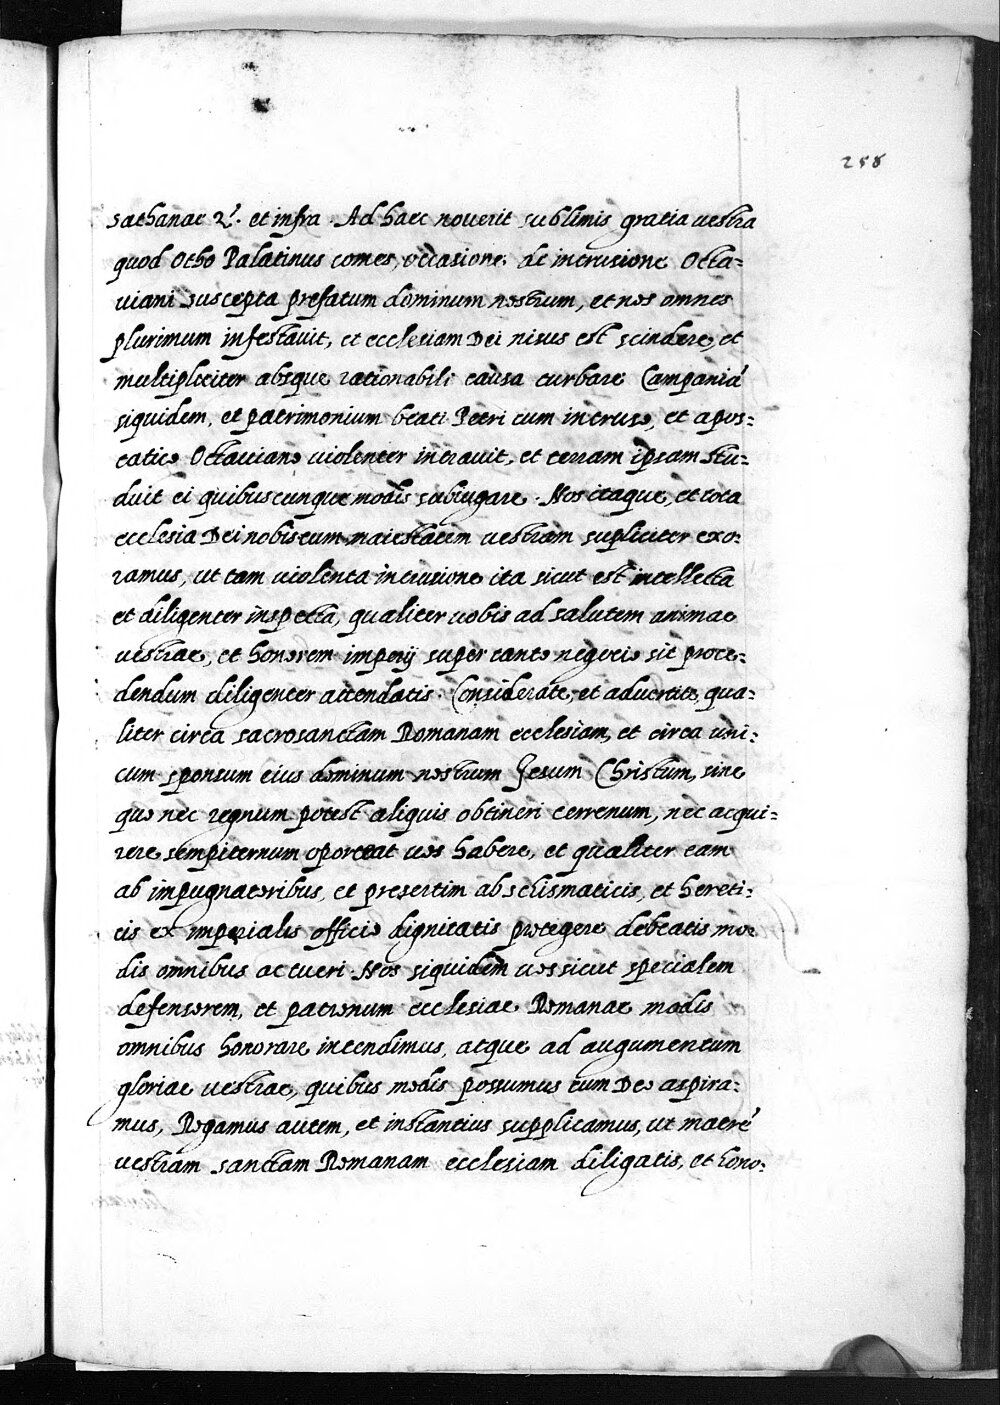 258
sathanae 2ᵗ. et infra. Ad haec noverit sublimis gratia uestra
quod Otho Palatinus comes, occasione de intrusione Octa=
uiani suscepta prefatum dominum nostrum, et nos omnes
plurimum infestauit, et ecclesiam Dei nisus est scindere, et
multipliciter absque rationabili causa turbare Campaniã
siquidem, et patrimonium beati Petri cum intruso, et apos=
tatico Octauiano uiolenter intrauit, et terram ipsam stu=
duit ei quibuscunque modis subiugare. Nos itaque, et tota
ecclesia Dei nobiscum maiestatem uestram supliciter exo=
ramus, ut tam uiolenta intrusione ita sicut est intellecta
et diligenter inspecta, qualiter uobis ad salutem animae
uestrae, et honorem imperij super tanto negotio sit proce=
dendum diligenter attendatis. Considerate, et aduertite, qua=
liter circa sacrosanctam Romanam ecclesiam, et circa uni=
cum sponsum eius dominum nostrum Jesum Christum, sine
quo nec regnum potest aliquis obtineri terrenum, nec acqui=
rere sempiternum oporteat uos habere, et qualiter eam
ab impugnatoribus, et presertim ab schismaticis, et hereti=
cis ex imperialis officio dignitatis protegere debeatis mo=
dis omnibus ac tueri. Nos siquidem uos sicut specialem
defensorem, et patronum ecclesiae Romanae modis
omnibus honorare intendimus, atque ad augumentum
gloriae uestrae, quibus modis possumus cum Deo aspira=
mus, Rogamus autem, et instantius supplicamus, ut matrẽ
uestram sanctam Romanam ecclesiam diligatis, et hono=